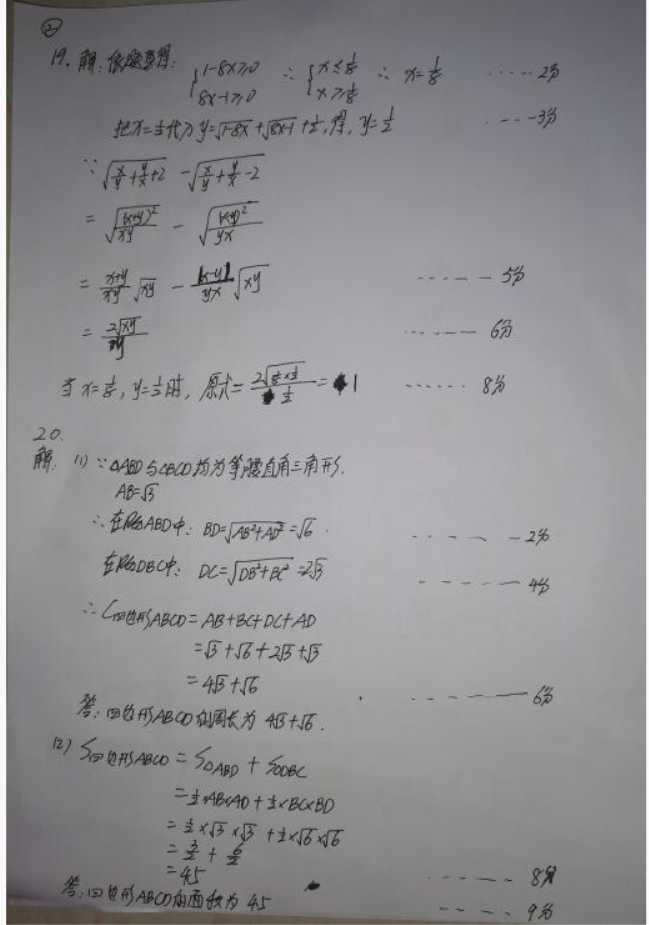 ②
19. 解: 依题意得: {1-8x≥0 8x-1≥0 ∴ {x≤1/8 x≥1/8 ∴ x=1/8 ·····2分
把x=1/8代入 y=√(1-8x)+√(8x-1)+1/2, 得, y=1/2 ···-3分
∵ √(x/y+y/x+2) - √(x/y+y/x-2)
= √((x+y)²/xy) - √((x-y)²/yx)
= (x+y)/xy √xy - |x-y|/yx √xy ······5分
= 2√xy/y ······6分
当 x=1/8, y=1/2时, 原式= 2√(1/8×1/2)/(1/2) = 1 ······8分
20.
解. (1) ∵ △ABD与△BCD均为等腰直角三角形.
AB=√3
∴ 在Rt△ABD中: BD=√(AB²+AD²)=√6. ·····2分
在Rt△DBC中: DC=√(DB²+BC²)=2√3 ······4分
∴ C四边形ABCD = AB+BC+DC+AD
=√3+√6+2√3+√3
=4√3+√6 ······6分
答: 四边形ABCD的周长为 4√3+√6.
(2) S四边形ABCD = S△ABD + S△DBC
=1/2×AB×AD+1/2×BC×BD
=1/2×√3×√3+1/2×√6×√6
=3/2+6/2
=4.5 ······8分
答: 四边形ABCD的面积为 4.5 ······9分